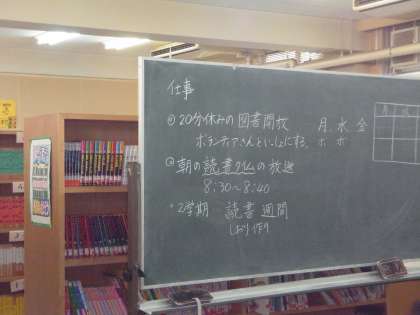 仕事
◎20分休みの図書開放 月、水 金
ボランティアさんといっしょにする。ホ ホ
◎朝の読書タイムの放送
8:30~8:40
・2学期 読書週間
しおり作り